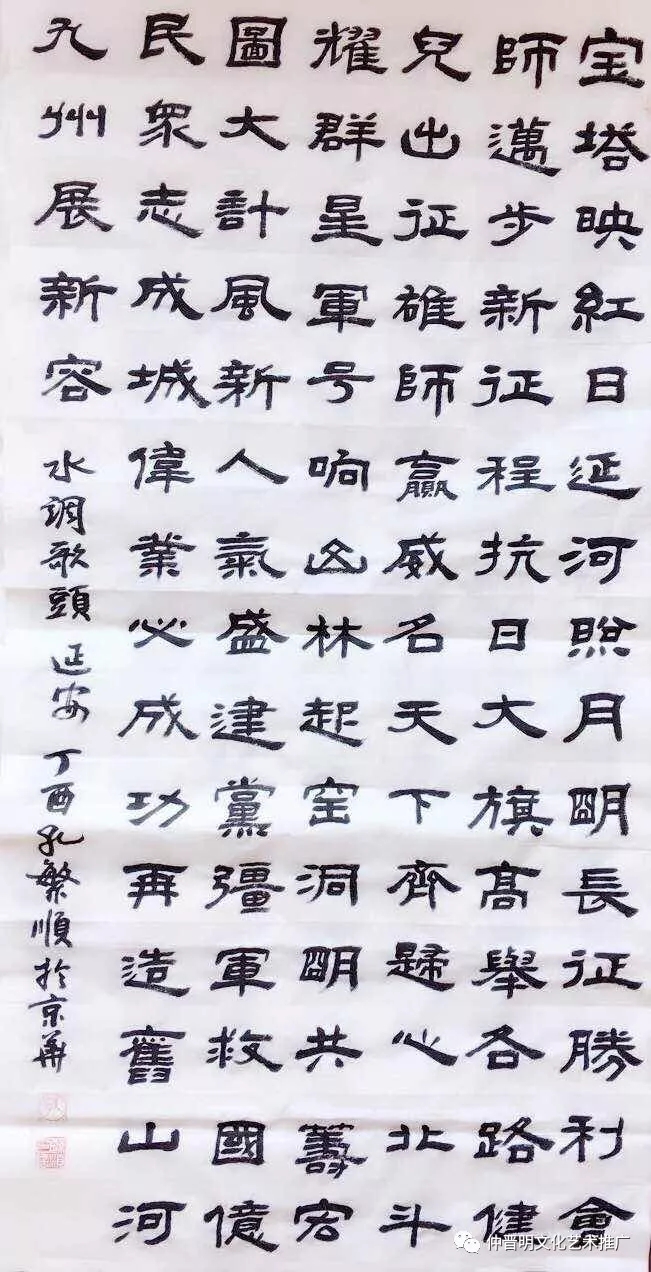 宝塔映紅日延河照月明長征勝利會
師邁步新征程抗日大旗髙舉各路健
兒出征雄師贏威名天下齊歸心北斗
耀群星軍号响山林起窑洞明共籌宏
圖大計風新人氣盛建黨彊軍救國億
民衆志成城偉業必成功再造舊山河
九州展新容 水調歌頭 延安 丁酉孔繁順於京華
仲晋明文化艺术推广